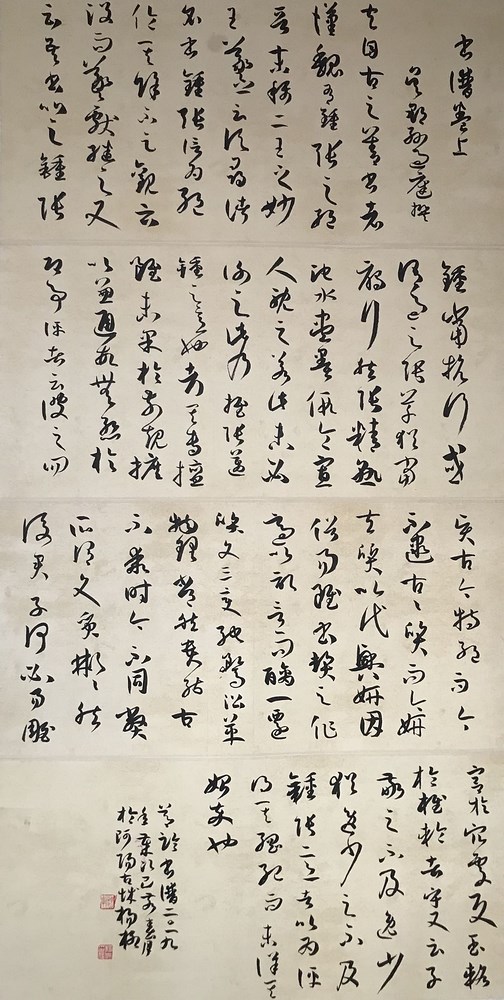 書譜卷上
吳郡孫過庭撰
夫自古之善書者
漢魏有鍾張之絕
晉末稱二王之妙
王羲之云頃尋諸
名書鍾張信為絕
倫其餘不足觀云
沒而羲獻繼之又
云吾書比之鍾張
鍾當抗行或
謂過之張草猶當
雁行然張精熟
池水盡墨假令寡
人耽之若此未必
謝之此乃推張邁
鍾之意也考其專擅
雖未果於前規摭
以兼通故無慚於
即事評者云彼之四
賢古今特絕而今
不逮古古質而今妍
夫質以代興妍因
俗易雖書契之作
適以記言而醨一遷
質文三變馳騖沿革
物理常然貴能古
不乖時今不同弊
所謂文質彬彬然
後君子何必易雕
宮於穴處反玉輅
於椎輪者乎又云子
敬之不及逸少
猶逸少之不及
鍾張意者以為評
得其綱紀而未詳其
始卒也
節臨書譜二〇一九
年歲次己亥春月
於阿陽古城楊